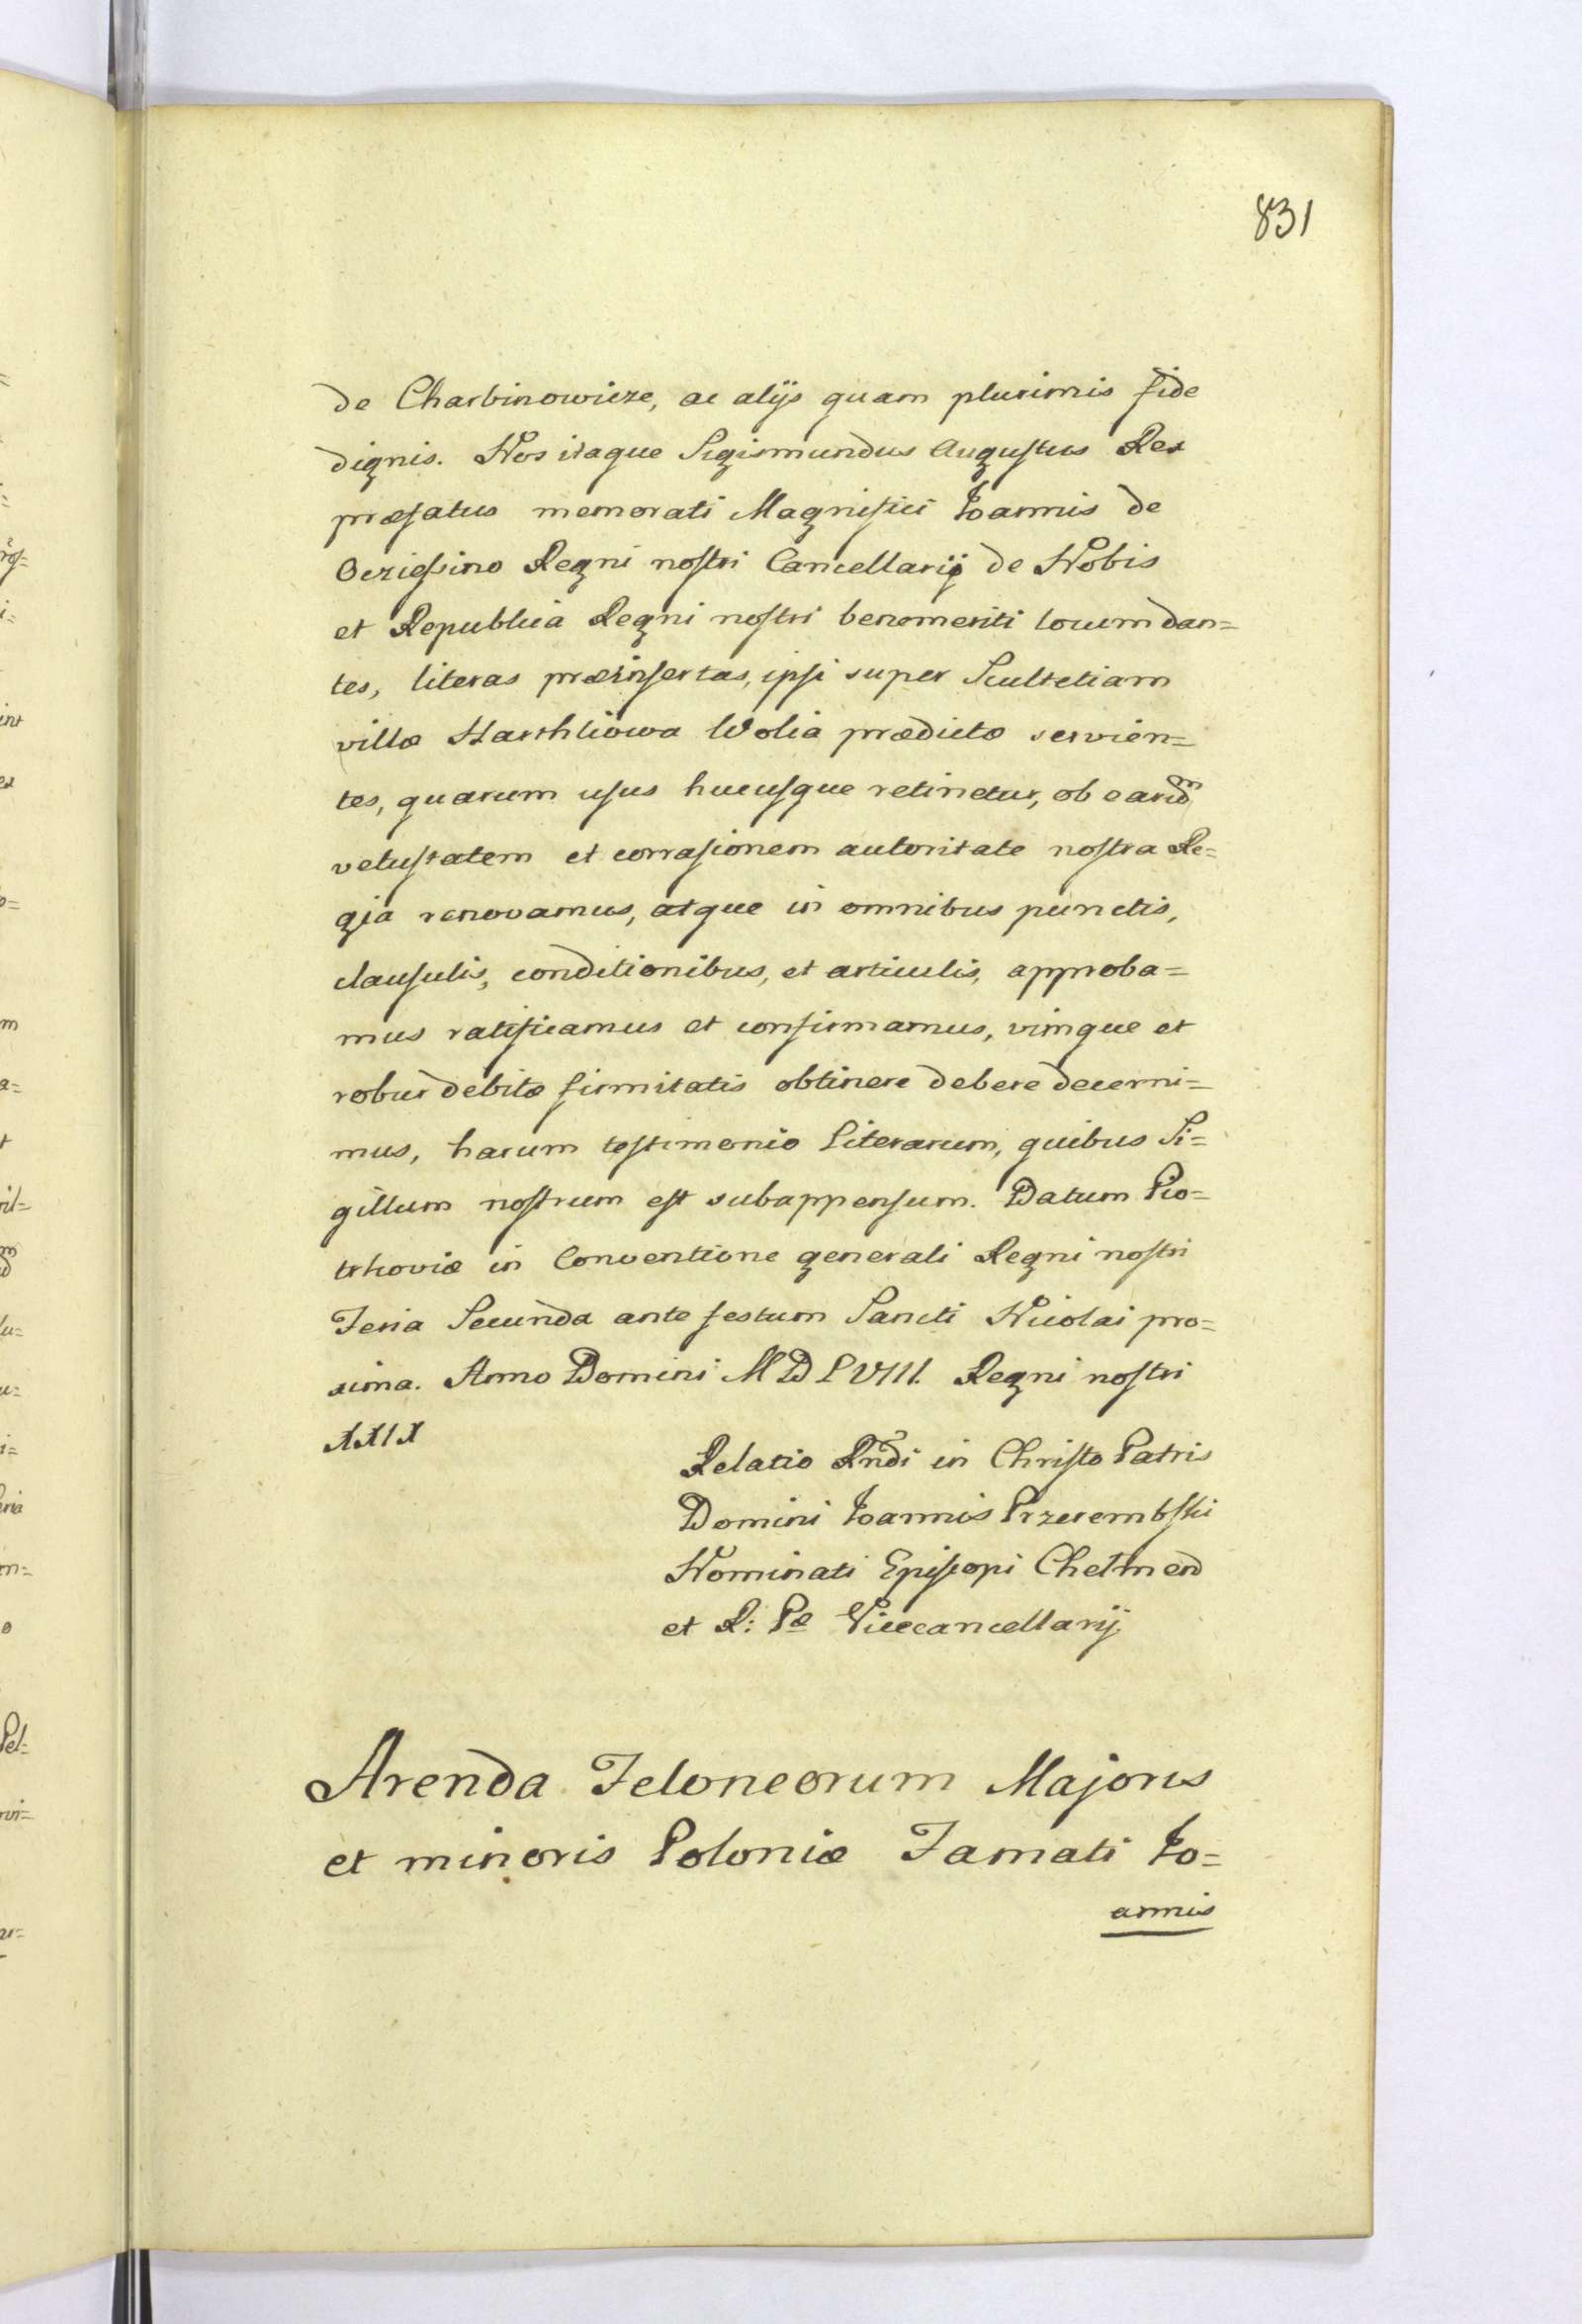 831
de Charbinowicze, ac alijs quam plurimis fide
dignis. Nos itaque Sigismundus Augustus Rex
præfatus memorati Magnifici Joannis de
Oczieſsino Regni noſtri Cancellarij de Nobis
et Republica Regni noſtri benemeriti locum dan=
tes, literas præinſertas, ipſi super Scultetiam
villæ Harkhliowa Wolia prædictæ servien=
tes, quarum uſus hucuſque retinetur, ob earũdm
vetuſtatem et corraſionem autoritate noſtra Re=
gia renovamus, atque in omnibus punctis,
clauſulis, conditionibus, et articulis, approba=
mus ratificamus et confirmamus, vimque et
robur debitæ firmitatis obtinere debere decerni=
mus, harum teſtimonio literarum, quibus Si=
gillum noſtrum eſt subappenſum. Datum Pio=
trkoviæ in Conventione generali Regni noſtri
Feria Secunda ante feſtum Sancti Nicolai pro=
xima. Anno Domini MDLVIII. Regni noſtri
XXIX
Relatio Rndi in Chriſto Patris
Domini Joannis Przerembſki
Nominati Epiſcopi Chelmen
et R: Pæ Vicecancellarij.
Arenda Teloneorum Majoris
et minoris Poloniæ Famati Jo=
annis